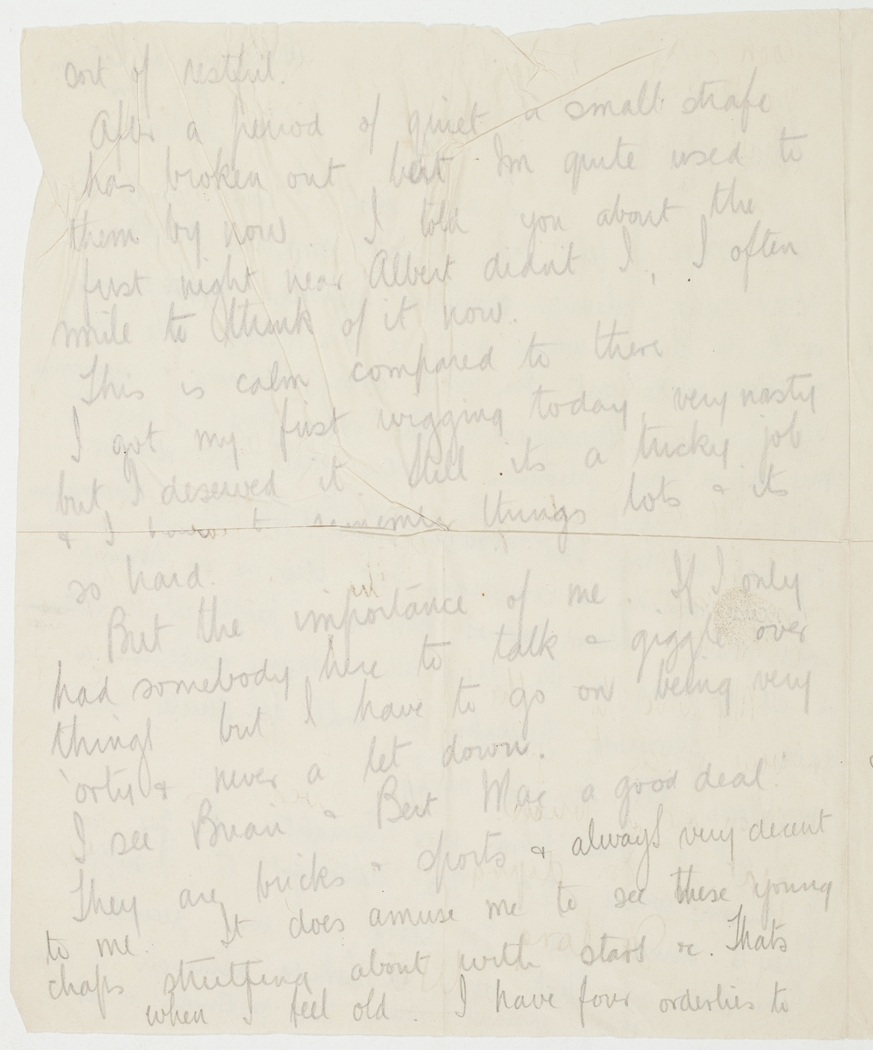 sort of restful.
After a period of quiet a small strafe
has broken out but Im quite used to
them by now. I told you about the
first night near Albert didn't I, I often
smile to think of it now.
This is calm compared to there
I got my first wigging today, very nasty
but I deserved it. Still its a tricky job
& I have to remember things lots & its
so hard.
But the importance of me. If I only
had somebody here to talk & giggle over
things but I have to go on being very
'orty & never a let down.
I see Brian & Bert Mac a good deal
They are bricks & sports & always very decent
to me. It does amuse me to see these young
chaps strutting about with stars &c. Thats
when I feel old. I have four orderlies to